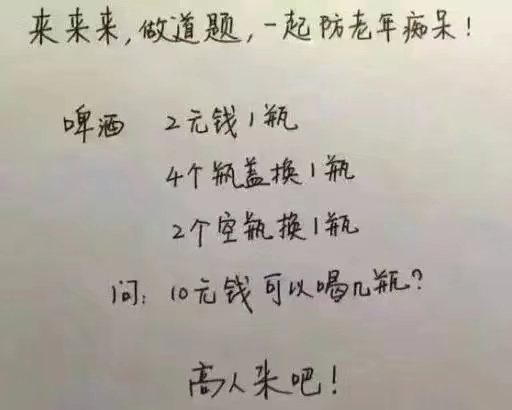 来来来,做道题,一起防老年痴呆!
啤酒 2元钱1瓶
4个瓶盖换1瓶
2个空瓶换1瓶
问: 10元钱可以喝几瓶?
高人来吧!